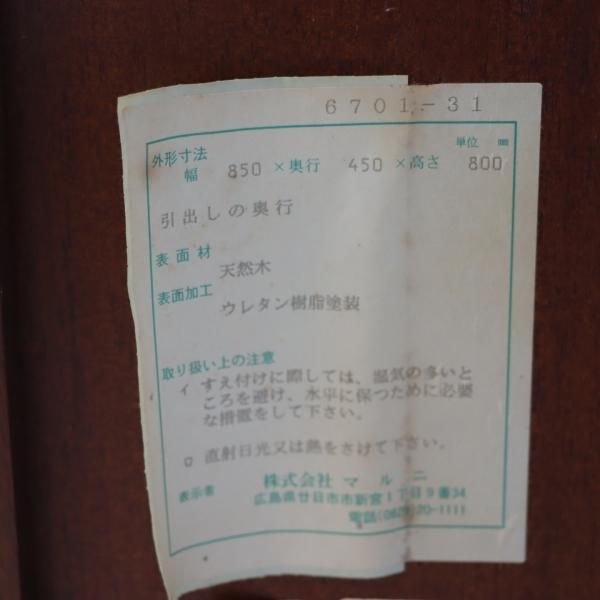 6701-31
外形寸法 単位 mm
幅 850 × 奥行 450 × 高さ 800
引出しの奥行
表面材 天然木
表面加工 ウレタン樹脂塗装
取り扱い上の注意
イ すえ付けに際しては、湿気の多いと
ころを避け、水平に保つために必要
な措置をして下さい。
ロ 直射日光又は熱をさけて下さい。
表示者 株式会社 マルニ
広島県廿日市市新宮1丁目9番34
電話(0829)20-1111